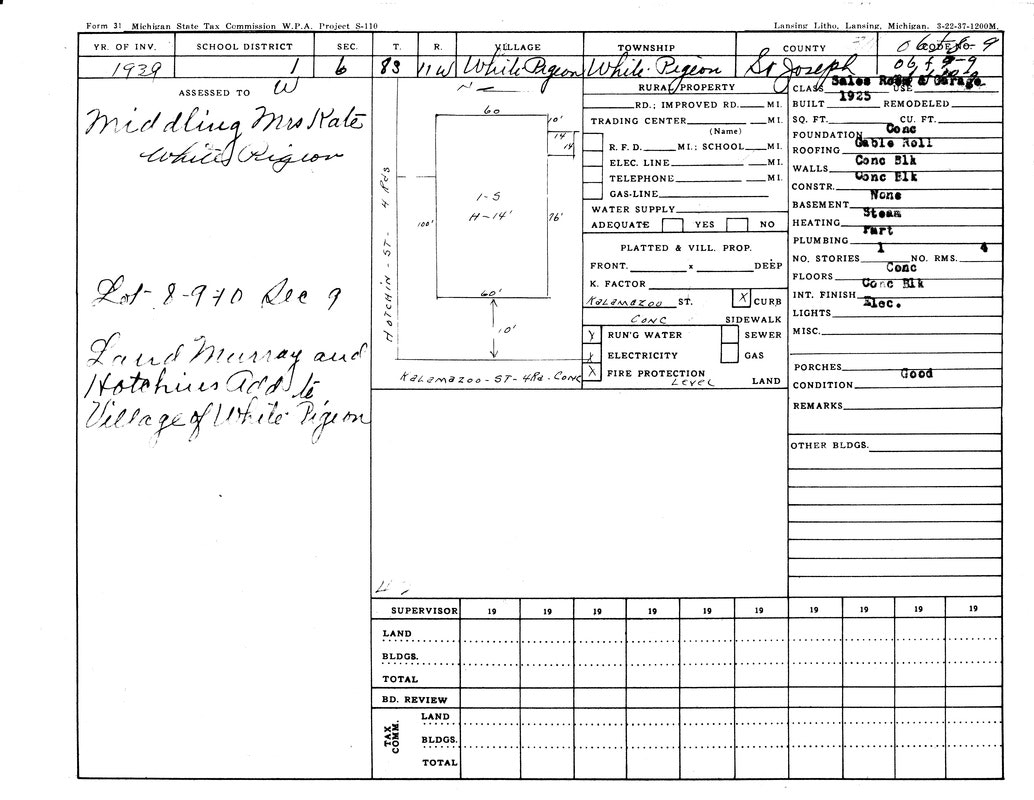 Form 31 Michigan State Tax Commission W.P.A. Project S-110
Lansing Litho, Lansing, Michigan. 3-22-37-1200M.
YR. OF INV. SCHOOL DISTRICT SEC. T. R. VILLAGE TOWNSHIP COUNTY CODE NO.
1939 1 6 8S 11W White Pigeon White Pigeon St Joseph
ASSESSED TO W
Middling Mrs Kate
White Pigeon
Lot 8-9-10 Sec 9
Land Murray and
Hotchins Add to
Village of White Pigeon
60
10'
14
14
HOTCHIN-ST- 4 Rds
100'
1-S
H-14'
76'
60'
10'
KALAMAZOO-ST-4Rd-CONC
RURAL PROPERTY
RD.; IMPROVED RD. MI.
TRADING CENTER MI.
(Name)
R. F. D. MI.; SCHOOL MI.
ELEC. LINE MI.
TELEPHONE MI.
GAS-LINE
WATER SUPPLY
ADEQUATE YES NO
PLATTED & VILL. PROP.
FRONT. x DEEP
K. FACTOR
KALAMAZOO ST. X CURB
CONC SIDEWALK
X RUN'G WATER SEWER
X ELECTRICITY GAS
X FIRE PROTECTION
LEVEL LAND
CLASS Sales Room & Garage USE
BUILT 1925 REMODELED
SQ. FT. CU. FT.
FOUNDATION Conc
ROOFING Gable Roll
WALLS Conc Blk
CONSTR. Conc Blk
BASEMENT None
HEATING Steam
PLUMBING Part
NO. STORIES 1 NO. RMS. 4
FLOORS Conc
INT. FINISH Conc Blk
LIGHTS Elec.
MISC.
PORCHES
CONDITION Good
REMARKS
OTHER BLDGS.
SUPERVISOR 19 19 19 19 19 19 19 19 19 19
LAND
BLDGS.
TOTAL
BD. REVIEW
TAX COMM.
LAND
BLDGS.
TOTAL